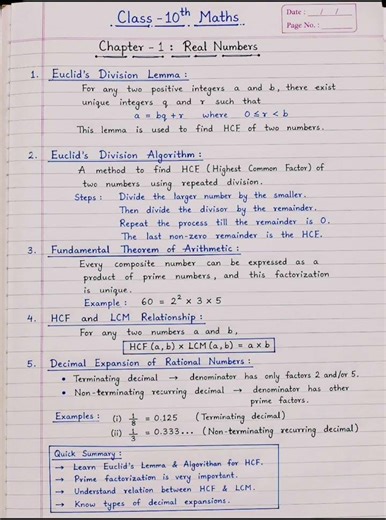 Class - 10th Maths
Date : / /
Page No. :
Chapter - 1 : Real Numbers
1. Euclid's Division Lemma :
For any two positive integers a and b, there exist
unique integers q and r such that
a = bq + r where 0 ≤ r < b
This lemma is used to find HCF of two numbers.
2. Euclid's Division Algorithm :
A method to find HCF (Highest Common Factor) of
two numbers using repeated division.
Steps : Divide the larger number by the smaller.
Then divide the divisor by the remainder.
Repeat the process till the remainder is 0.
The last non-zero remainder is the HCF.
3. Fundamental Theorem of Arithmetic :
Every composite number can be expressed as a
product of prime numbers, and this factorization
is unique.
Example : 60 = 2² × 3 × 5
4. HCF and LCM Relationship :
For any two numbers a and b,
HCF (a, b) × LCM (a, b) = a × b
5. Decimal Expansion of Rational Numbers :
• Terminating decimal → denominator has only factors 2 and/or 5.
• Non-terminating recurring decimal → denominator has other
prime factors.
Examples : (i) 1/8 = 0.125 (Terminating decimal)
(ii) 1/3 = 0.333... (Non-terminating recurring decimal)
Quick Summary :
→ Learn Euclid's Lemma & Algorithm for HCF.
→ Prime factorization is very important.
→ Understand relation between HCF & LCM.
→ Know types of decimal expansions.